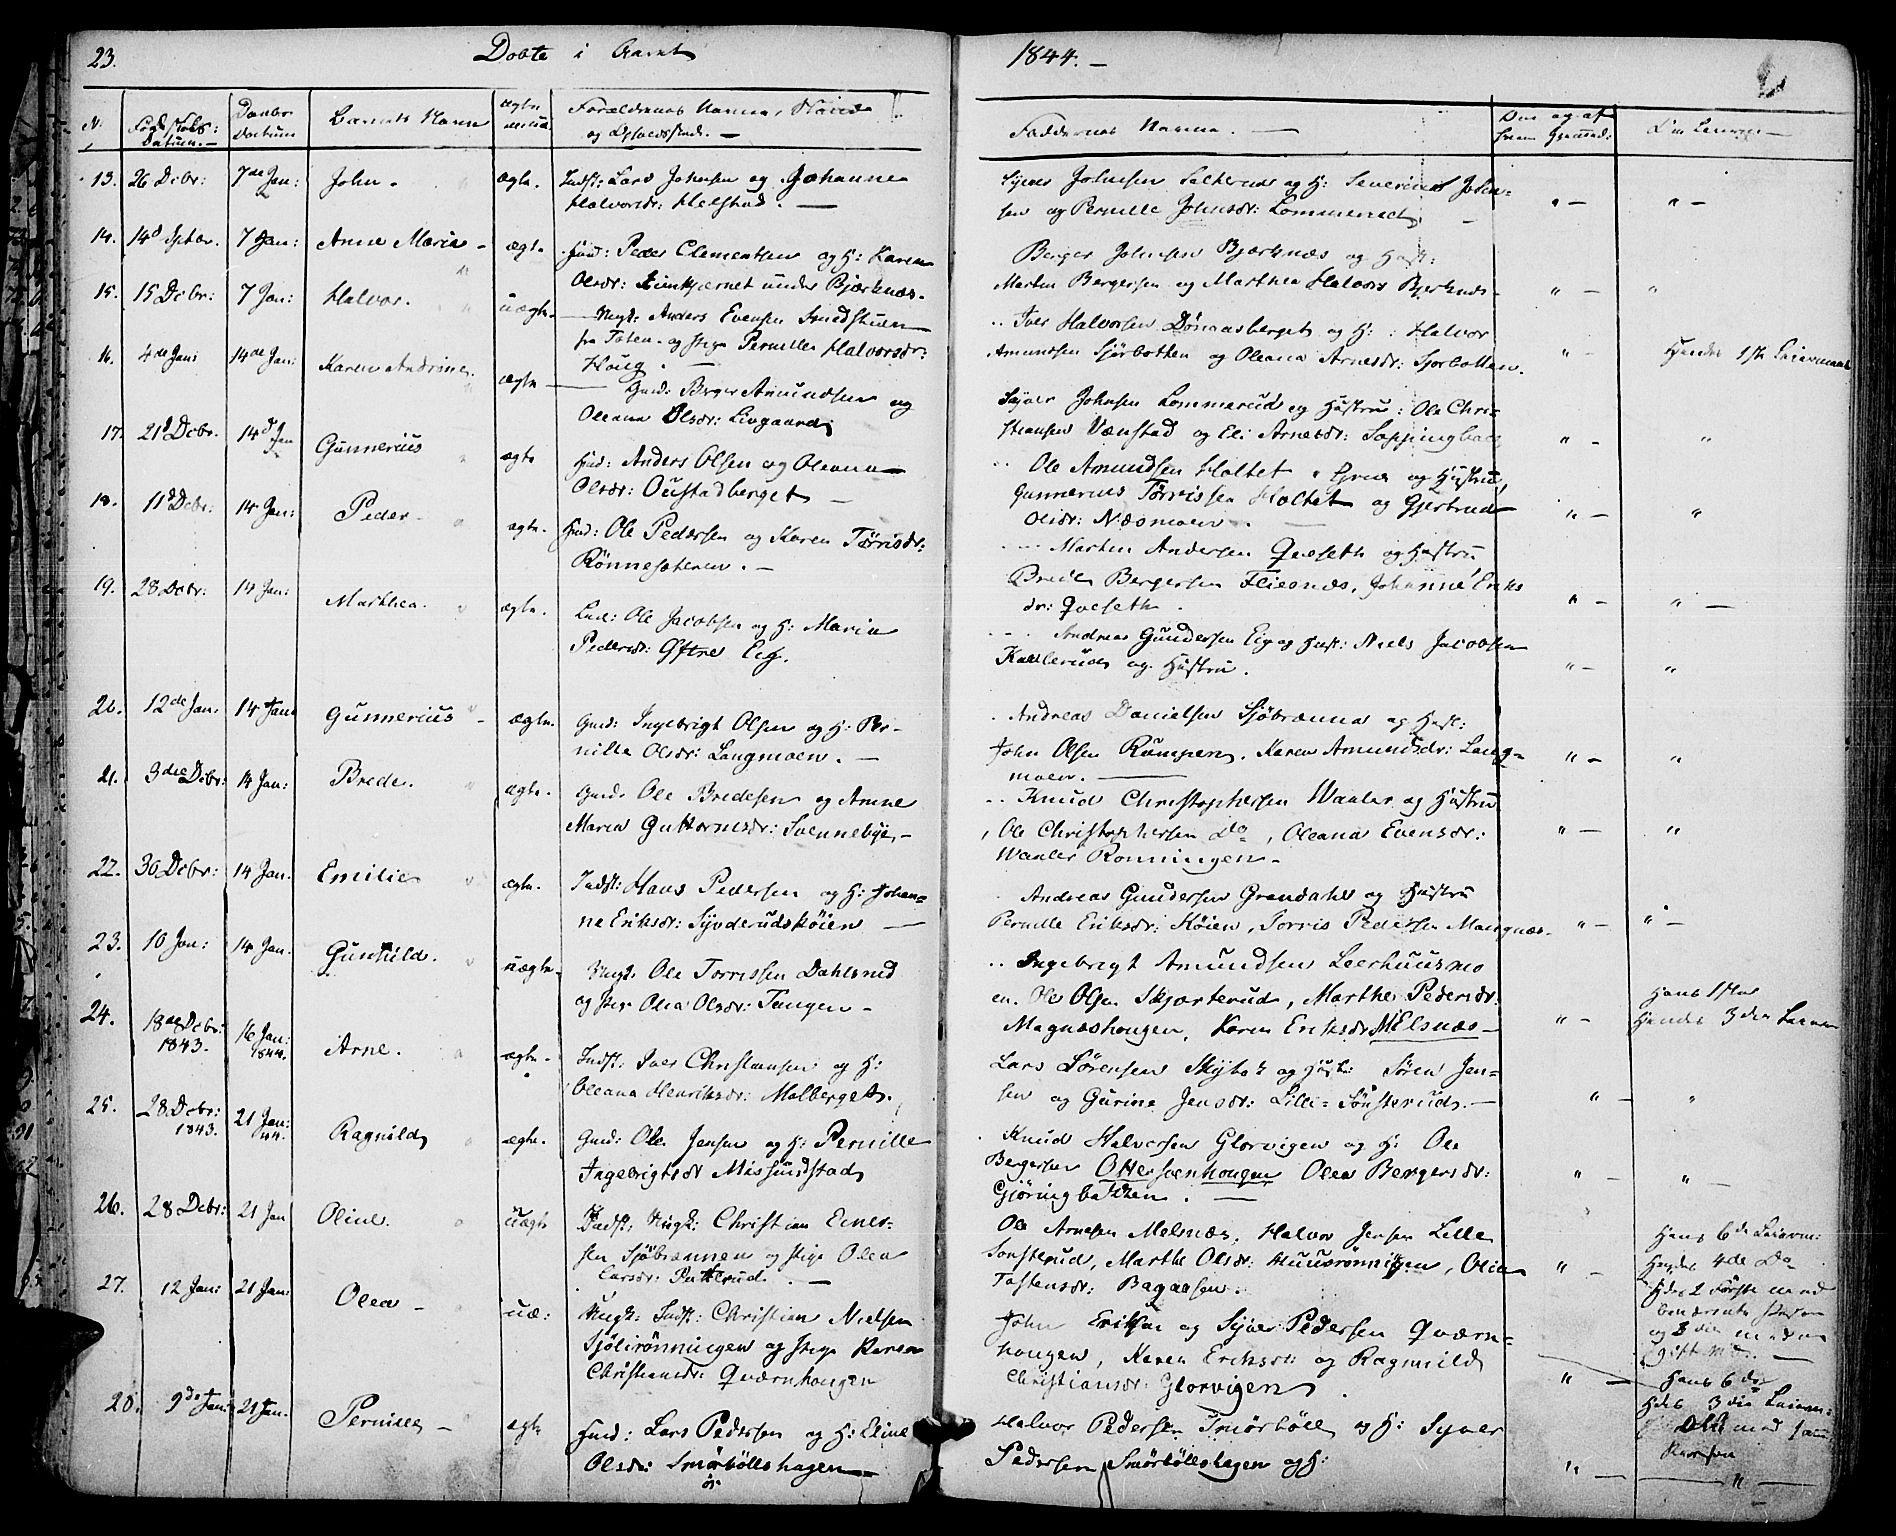 23. Døbte i Aaret 1844. —
N: Fødselsds: Datum. — Daabs Datum Barnets Navn ægte uægte Forældrenes Navne, Stand og Opholdssted. — Faddernes Navne. — Din Leierm —
13. 26 Dcbr: 7de Jan: John. ægte. Indst: Lars Johnsen og Johanne
Halvorsdr: Helstad. —
Syver Johnsen og H: Severinus John=
sen og Pernille Johnsdr: Lommerud
" — " —
14. 14d Sptbr. 7 Jan: Anne Marie — ægte. Huusm: Peder Clementsen og H: Karen
Olsdr: under Bjerknæs.
Berger Johnsen Bjærknæs og Hust:
Martin Bergersen og Marthea Halvors Bjerknæs —
" — "
15. 15 Dcbr: 7 Jan: Halvor. uægte. Ungk: Anders Evensen Smedstuen
fra Toten og pige Pernille Halvorsdr:
Houg. —
Iver Halvorsen Dønnasberget og H: Halvor
Amundsen Sjørbotten og Oleana Arnesdr: Sjorbotten.
" — Hendes 1ste Leiermaal
16. 4de Jan: 14de Jan: Karen Andrine. ægte — Gmd: Berger Amundsen og
Oleana Olsdr: Lingaard
Syver Johnsen Lommerud og Hustru: Ole Chri=
stiansen Vænstad og Eli Arnesdr:
" — "
17. 21d Dcbr. 14d Jan Gunnerius ægte Hmd: Anders Olsen og Oleana
Olsdr: Oustadberget —
Ole Amundsen Holtet og Hustru,
Gunnerius Tørrissen Holtet og Gjertrud
Olsdr: Næsmoen.
" — "
18. 11d Dcbr: 14 Jan: Peder. ægte. Hmd: Ole Pedersen og Karen Tørrisdr:
Rønnesæteren. —
Martin Andersen Qveseth og Hustru
Brede Bergersen Fliesnæs, Johanne Eriks
dr: Qveseth.
" — " —
19. 28 Dcbr: 14 Jan: Marthea. ægte. Ole Jacobsen og H: Maria
Pedersdr: Østre Eig.
Andreas Gundersen Eig og Hust: Niels Jacobsen
Kallerud og Hustru.
" — "
20. 12de Jan. 14 Jan: Gunnerius — ægte. Gmd: Ingebrigt Olsen og H: Per=
nille Olsdr: Langmoen. —
Andreas Danielsen Sjøbrænna og Hust:
John Olsen Rumpen. Karen Amundsdr: Lang=
moen. —
" — "
21. 3die Dcbr: 14 Jan: Brede. ægte. Gmd. Ole Bredesen og Anne
Maria Guttormsdr: Svennebye, —
Knud Christophersen Waaler og Hustru
Ole Christophersen Do, Oleana Evensdr:
Waaler Ronningen —
" — "
22. 30 Dcbr: 14 Jan. Emilie ægte. Indst: Hans Pedersen og H: Johan=
ne Eriksdr: Syvderudskøien —
Andreas Gundersen Grandahl og Hustru
Pernille Eriksdr: Køien, Torris Pedersen Mangnæs.
" — " —
23. 10 Jan: 14 Jan. Gunhild. uægte. Ungk: Ole Torrissen Dahlsrud
og pige Olia Olsdr: Tangen —
Ingebrigt Amundsen Leerhuusmo
en. Ole Olsen Skjærterud, Marthe Pedersdr.
Magnæshougen, Karen Eriksdr: Melsnæs —
" — Hans 1ste
Hendes 3die Leierm
24. 18de Dcbr: 1843. 16 Jan: 1844. Arne. ægte. Indst: Iver Christiansen og H:
Oleana Henriksdr: Malberget.
Lars Sørensen og Hustr: Søren Jen=
sen og Gurine Jensdr: Lille=Sønsterud. —
" — "
25. 28 Dcbr: 1843. 21 Jan: 44. Ragnild ægte. Gmd: Ole Jensen og H: Pernille
Ingebrigtsdr Missundstad
Knud Halvorsen Glorvigen og H: Ole
Bergersen Ottersøenhougen Olea Bergersdr:
Gjøringbakken. —
" — " —
26. 28 Dcbr: 21 Jan Oline. uægte Indst: Ungk: Christian Einer=
sen Sjøbrænnen og pige Olea
Larsdr: Putterud. —
Ole Arnesen Melsnæs, Halvor Jensen Lille
Sønsterud, Marthe Olsdr: Huusrønningen, Olia
Tostensdr: Bagaasen.
" — Hans 6de Leierm:
Hendes 4de Do
Hdes 2 Første med
benævnte Person
og 3die med en
gift Md. —
27. 12 Jan: 21 Jan: Olea — uæ: Ungk: Indst: Christian Nielsen
Sjølirønningen og pige Karen
Christiansdr: Qværnhougen
John Eriksen og Syver Pedersen Qværn=
hougen, Karen Eriksdr: og Ragnild
Christiansdr: Glorvigen.
" — Hans 6de
Hdes 3die Leierm:
Alle med samme
Person
28. 9de Jan: 21 Jan. Pernille — ægte Hmd: Lars Pedersen og H: Eline
Olsdr: Smørbøllshagen —
Halvor Pedersen Smørbøll og H: Syver
Pedersen Smörböllshagen og H:
" — — " —